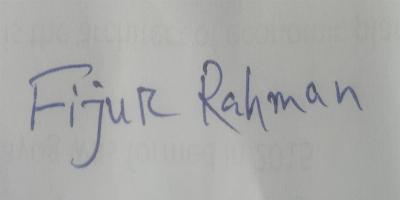 Fijur Rahman